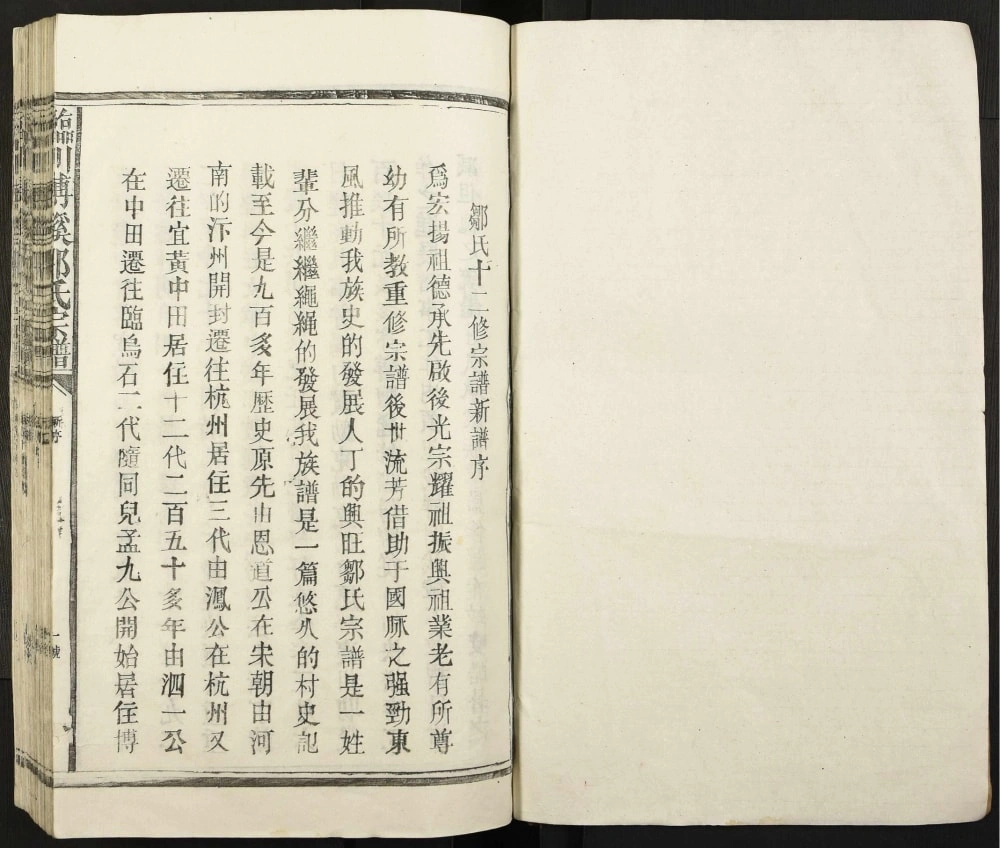 鄒氏十二修宗譜新譜序
爲宏揚祖德承先啟後光宗耀祖振興祖業老有所尊
幼有所教重修宗譜後世流芳借助于國脈之强勁東
風推動我族史的發展人丁的興旺鄒氏宗譜是一姓
輩分繼繼繩繩的發展我族譜是一篇悠久的村史記
載至今是九百多年歷史原先由恩道公在宋朝由河
南的汴州開封遷往杭州居住三代由鳳公在杭州又
遷往宜黃中田居住十二代二百五十多年由泗一公
在中田遷往臨烏石二代隨同兒孟九公開始居住博
臨川博溪鄒氏宗譜
新序
一號